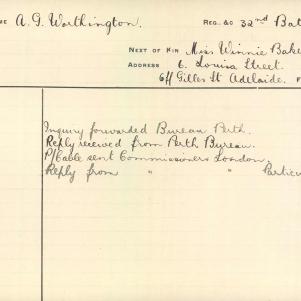 ME A. G. Worthington. REG. & C 32nd Bat
NEXT OF KIN Miss Winnie Bake
ADDRESS 6. Louisa Street.
off Gilles St Adelaide. F
Inquiry forwarded Bureau Perth.
Reply received from Perth Bureau.
P/Cable sent Commissioners London.
Reply from " " Particu